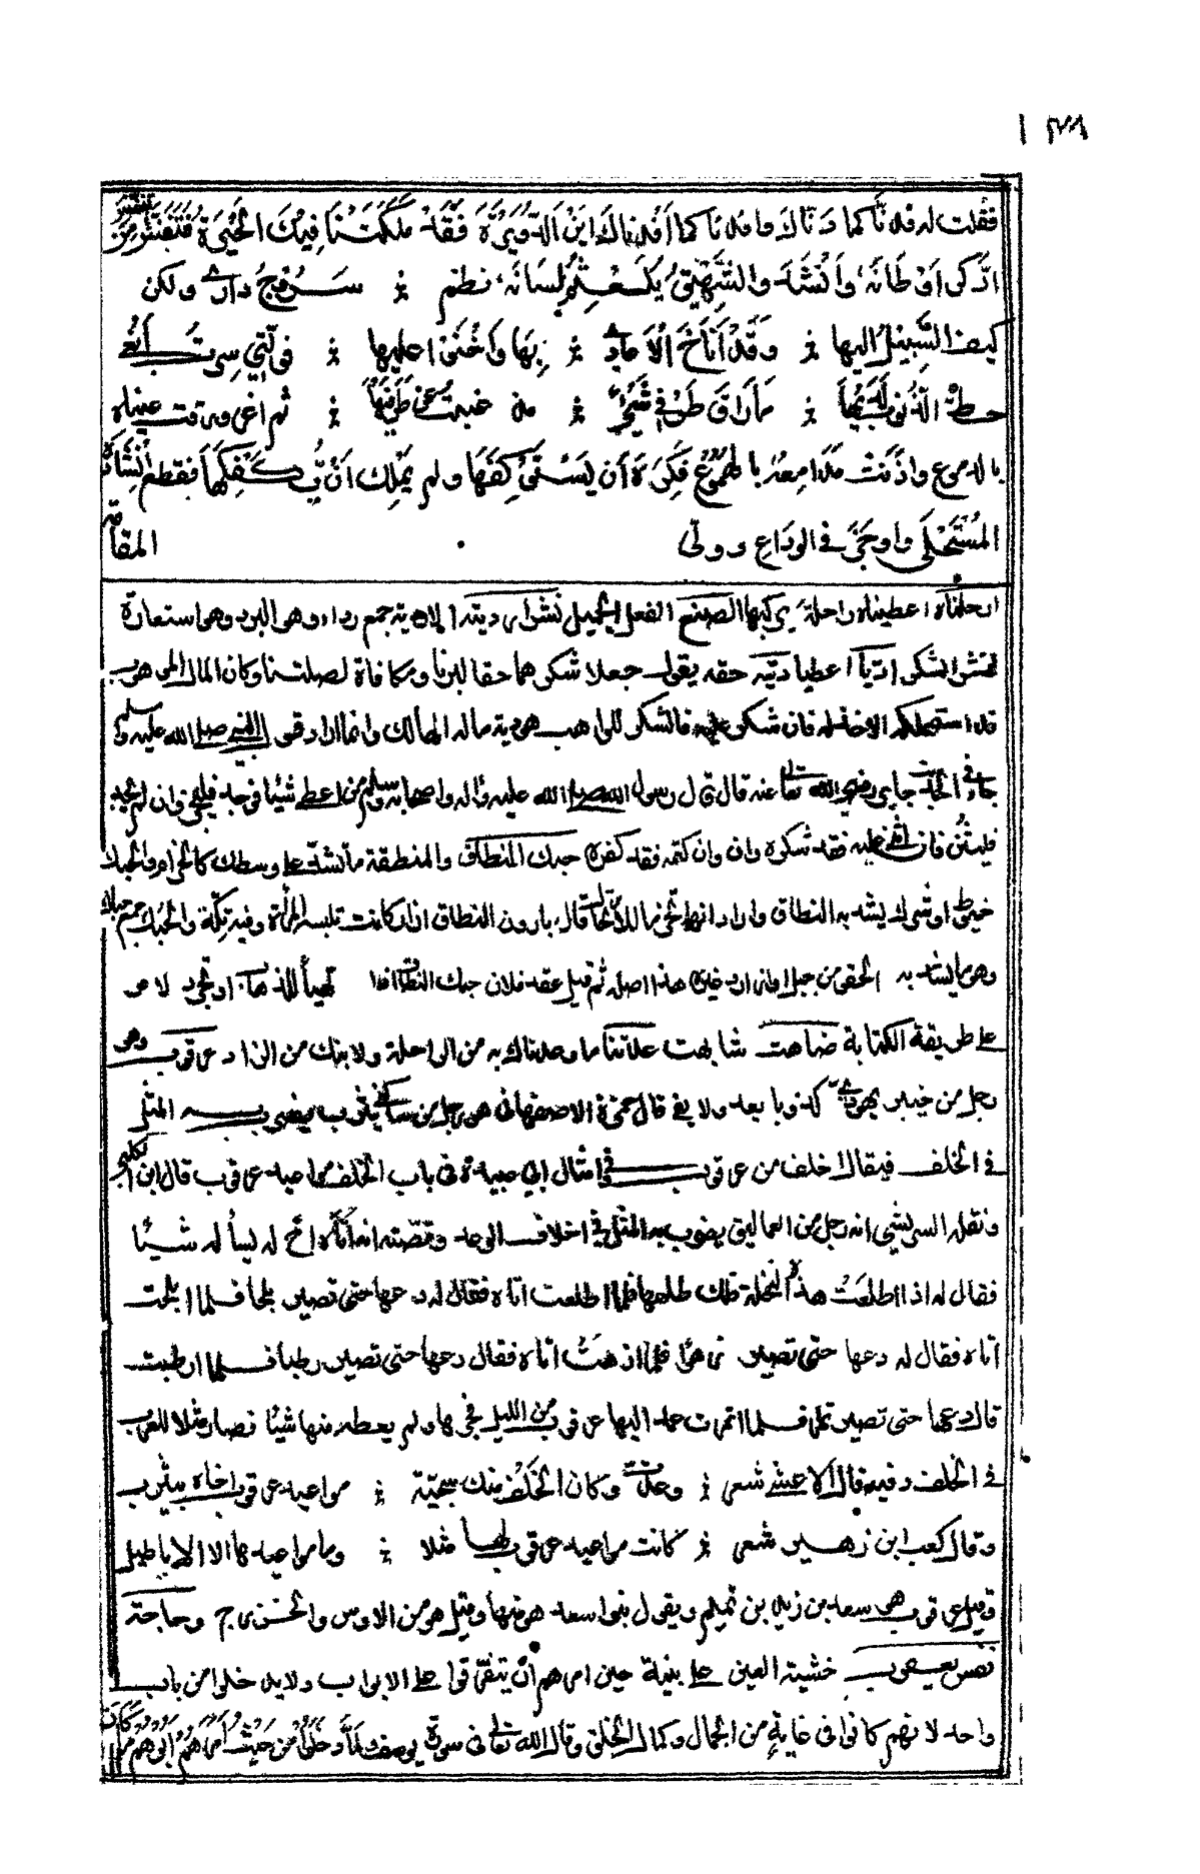 ١٣٨
فقلت له قد دناك كما دناك وافدناكما افدناك اين الدويرة فقد ملكتنا فيك الحيرة فتنفس من
ادكر اوطانه وانشد والشهيق يلعثم لسانه نظم سروج داري ولكن
كيف السبيل اليها وقد اناخ الاعادي بها واخنوا عليها فوالتي سرت ابغي
حط الذنوب لديها ما راق طرفي شيء مذ غبت عن طرفيها ثم اغرورقت عيناه
بالدموع واذنت مدامعه بالهموع فكره ان يستوكفها ولم يملك ان يكفكفها فقطع انشاده
المستحلى واوجز في الوداع وولى المقامة
احلناه اعطيناه راحلة يركبها الصنيع الفعل الجميل نشر ارديته الاردية جمع رداء وهي البرد وهو استعارة
لنشر الشكر اديا اعطيا ديته حقه يقول جعلا شكرهما حقا لبرنا ومكافاة لصلتنا وكان المال الموهوب
قد استهلكه الاخذ له فان شكر عليه فالشكر للواهب هو دية ماله الهالك وانما اراد قول النبي صلى الله عليه وسلم
جاء في الحديث جابر رضي الله تعالى عنه قال قال رسول الله صلى الله عليه واله واصحابه وسلم من اعطي شيئا فوجد فليجز وان لم يجد
فليثن فان اثنى عليه فقد شكره وان كتمه فقد كفره حبك النطاق والمنطقة ما تشد على وسطك كالحزام والحبك
خيط او شراك يشد به النطاق واراد انها تحزما للارتحال قال بارون النطاق ازار كانت تلبسه المرأة وفيه تكة والحبك جمع حباك
وهو ما يشد به الحقو من حبل هذا اصله ثم قيل عقد فلان حبك النطاق اذا تهيأ للذهاب او تجرد لامر
على طريقة الكناية ضاهت شابهت علاتنا ما وعدناك به من الراحلة ولابنك من الزاد عرقوب وهو
رجل من خيبر يهودي كذوبا يعد ولا يف قال حمزة الاصفهاني هو رجل من ساكني يثرب يضرب به المثل
في الخلف فيقال اخلف من عرقوب وفي امثال ابي عبيدة في باب الخلف مواعيد عرقوب قال ابن الكلبي
ونقله الشريشي انه رجل من العماليق يضرب به المثل في اخلاف الوعد وقصته انه أتاه اخ له يسأله شيئا
فقال له اذا اطلعت هذه النخلة فلك طلعها فلما اطلعت اتاه فقال له دعها حتى تصير بلحا فلما ابلحت
اتاه فقال له دعها حتى تصير زهوا فلما ازهت اتاه فقال دعها حتى تصير رطبا فلما ارطبت
قال دعها حتى تصير تمرا فلما اتمرت عمد اليها عرقوب من الليل فجزها ولم يعطه منها شيئا فصار مثلا للعرب
في الخلف وفيه قال الاعشى شعر وعدت وكان الخلف منك سجية مواعيد عرقوب اخاه بيثرب
وقال كعب ابن زهير شعر كانت مواعيد عرقوب لها مثلا وما مواعيدها الا الاباطيل
وقيل عرقوب هو سعد بن زيد بن تميم ويقول بنو اسعد هو منها وقيل هو من الاوس والخزرج وحاجته
نفس يعقوب خشية العين على بنيه حين امرهم أن يتفرقوا على الابواب ولا يدخلوا من باب
واحد لانهم كانوا في غاية من الجمال وكمال الخلق وقال الله تعالى في سورة يوسف ولما دخلوا من حيث امرهم ابوهم ما كان